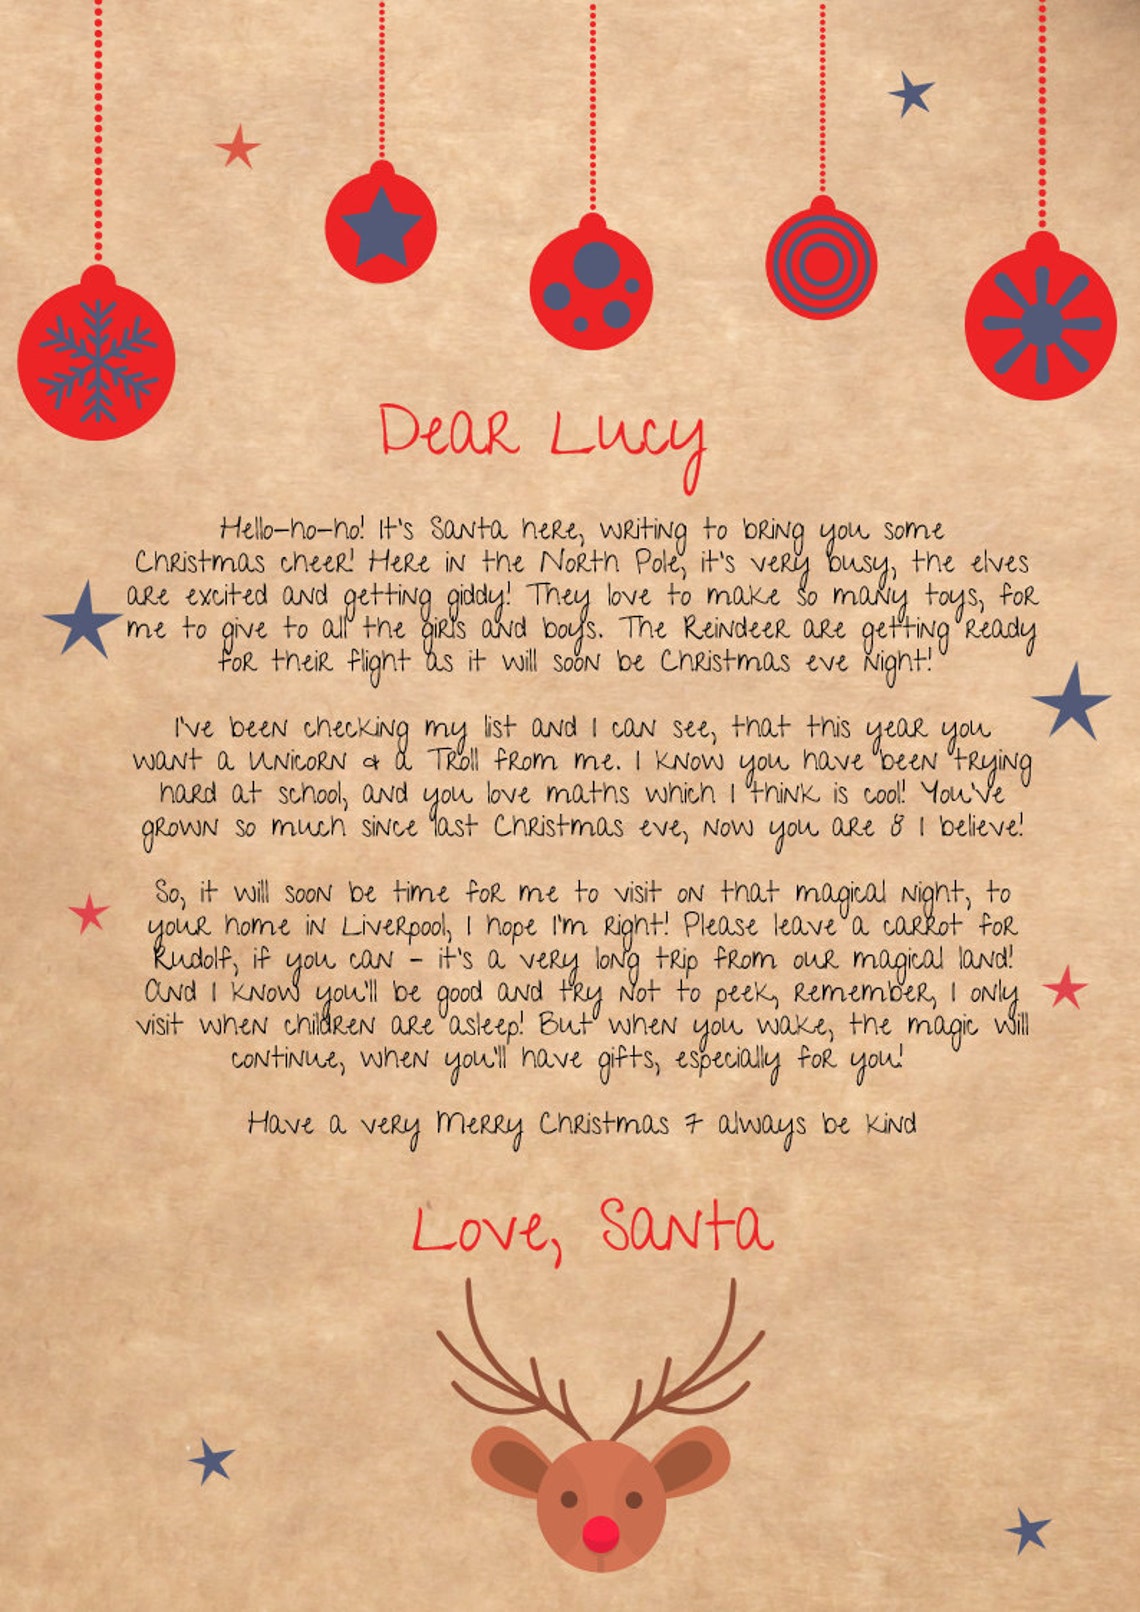 Dear Lucy
Hello-ho-ho! It's Santa here, writing to bring you some
Christmas cheer! Here in the North Pole, it's very busy, the elves
are excited and getting giddy! They love to make so many toys, for
me to give to all the girls and boys. The Reindeer are getting ready
for their flight as it will soon be Christmas eve night!
I've been checking my list and I can see, that this year you
want a Unicorn & a Troll from me. I know you have been trying
hard at school, and you love maths which I think is cool! You've
grown so much since last Christmas eve, now you are 8 I believe!
So, it will soon be time for me to visit on that magical night, to
your home in Liverpool, I hope I'm right! Please leave a carrot for
Rudolf, if you can - it's a very long trip from our magical land!
And I know you'll be good and try not to peek, remember, I only
visit when children are asleep! But when you wake, the magic will
continue, when you'll have gifts, especially for you!
Have a very Merry Christmas 7 always be kind
Love, Santa